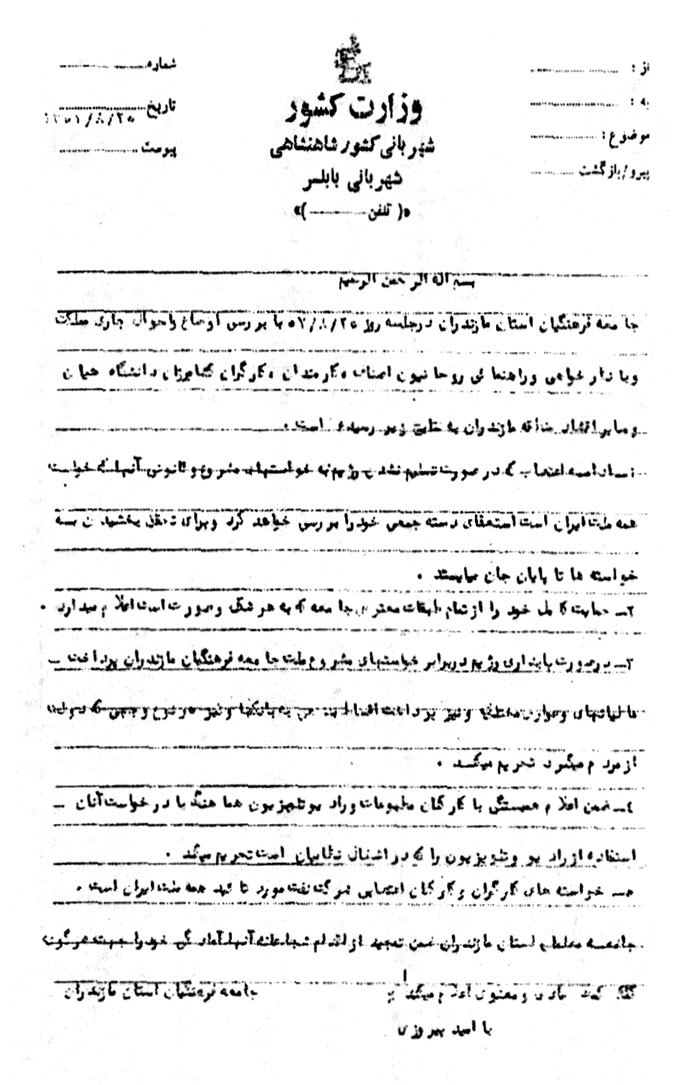 از :
به :
موضوع :
پیرو/بازگشت
وزارت کشور
شهربانی کشور شاهنشاهی
شهربانی بابلسر
«( تلفن )»
شماره
تاریخ ۱۳۵۷/۸/۲۵
پیوست
بسم اله الرحمن الرحیم
جامعه فرهنگیان استان مازندران درجلسه روز ۵۷/۸/۲۵ با بررسی اوضاع واحوال جاری مملکت
وبا نظر خواهی وراهنمائی روحانیون اصناف کارمندان کارگران کشاورزان دانشگاهیان
وسایر اقشار مازندران به نتایج زیر رسیده است .
ادامه اعتصاب که در صورت تسلیم نشدن رژیم به خواستهای مشروع وقانونی آنها که خواست
همه ملت ایران است استعفای دسته جمعی خودرا بررسی خواهد کرد وبرای تحقق بخشیدن به
خواسته ها تا پایان جان میایستد .
۲ـ حمایت کامل خود را ازتمام طبقات معترض جامعه که به هر شکل وصورت است اعلام میدارد .
۳ـ درصورت پایداری رژیم دربرابر خواستهای مشروع ملت جامعه فرهنگیان مازندران پرداخت ـ
مالیاتهای وعوارض مختلف ونیز پرداخت اقساط به بانکها ونیز هر نوع وجهی که دولت
ازمردم میگیرد تحریم میکند .
٤ـ ضمن اعلام همبستگی با کارکنان مطبوعات ورادیو تلویزیون هماهنگ با درخواست آنان ـ
استفاده ازرادیو وتلویزیون را که در اشغال نظامیان است تحریم میکند .
۵ـ خواسته های کارگران وکارکنان اعتصابی شرکت نفت مورد تائید همه ملت ایران است .
جامعه معلمان استان مازندران ضمن تمجید از اقدام شجاعانه آنها آمادگی خودرا جهت هرگونه
کمک مادی و معنوی اعلام میکند
جامعه فرهنگیان استان مازندران
با امید پیروزی